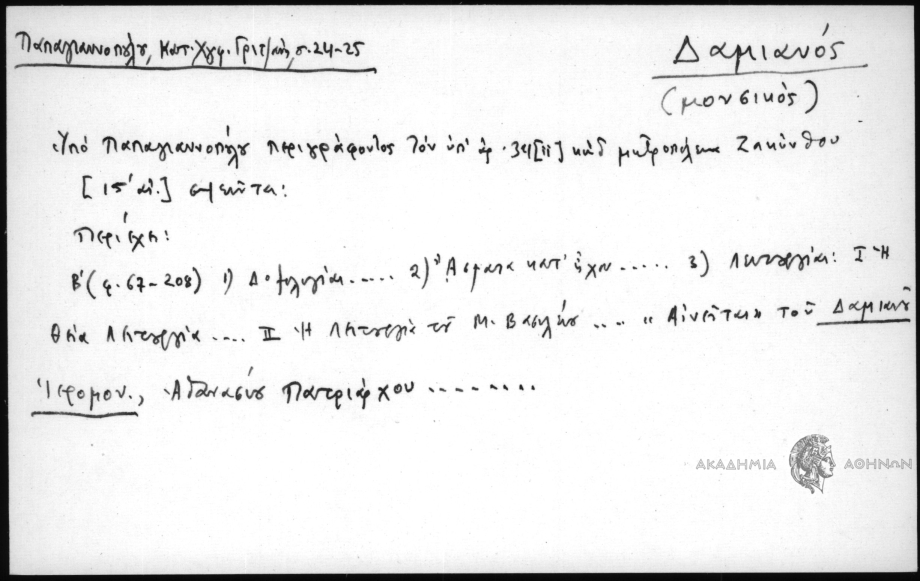 Παπαγιαννοπούλου, Κατ. Χγφ. Γριτσάνη, σ. 24-25
Δαμιανός
(μουσικός)
Ὑπό Παπαγιαννοπούλου περιγράφοντος τόν ὑπ' ἀρ. 34[II] κώδ μητροπόλεως Ζακύνθου
[15' αἰ.] σημειοῦται:
Περιέχει:
Β' (φ. 67-208) 1) Δοξολογίαι..... 2) Ἄσματα κατ' ἦχον ..... 3) Λειτουργίαι: I Ἡ
Θεία Λειτουργία .... II Ἡ Λειτουργία τοῦ Μ. Βασιλείου .... «Αἰνεῖτε» τοῦ Δαμιανοῦ
Ἱερομον., Ἀθανασίου Πατριάρχου ........
ΑΚΑΔΗΜΙΑ ΑΘΗΝΩΝ